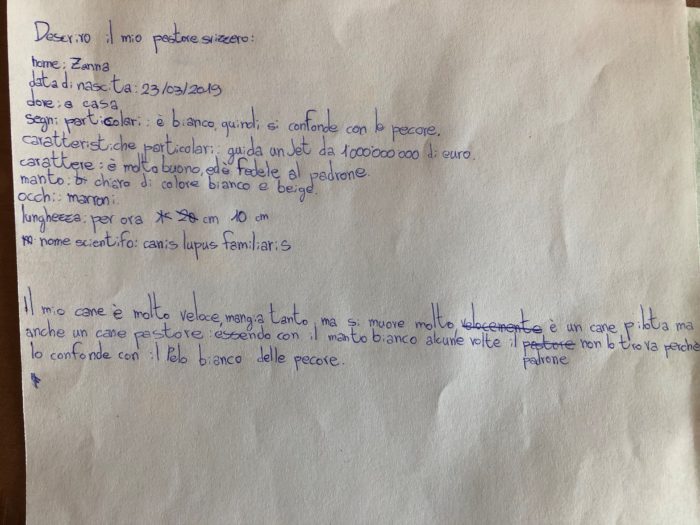 Descrivo il mio pastore svizzero:
nome: Zanna
data di nascita: 23/03/2019
dove: a casa
segni particolari: è bianco, quindi si confonde con le pecore.
caratteristiche particolari: guida un Jet da 1000'000 000 di euro.
carattere: è molto buono, ed è fedele al padrone.
manto: chiaro di colore bianco e beige.
occhi: marroni
lunghezza: per ora 20 cm 10 cm
nome scientifo: canis lupus familiaris
Il mio cane è molto veloce, mangia tanto, ma si muove molto, velocemente è un cane pilota ma
anche un cane pastore: essendo con il manto bianco alcune volte il pastore non lo trova perchè
padrone
lo confonde con il Pelo bianco delle pecore.